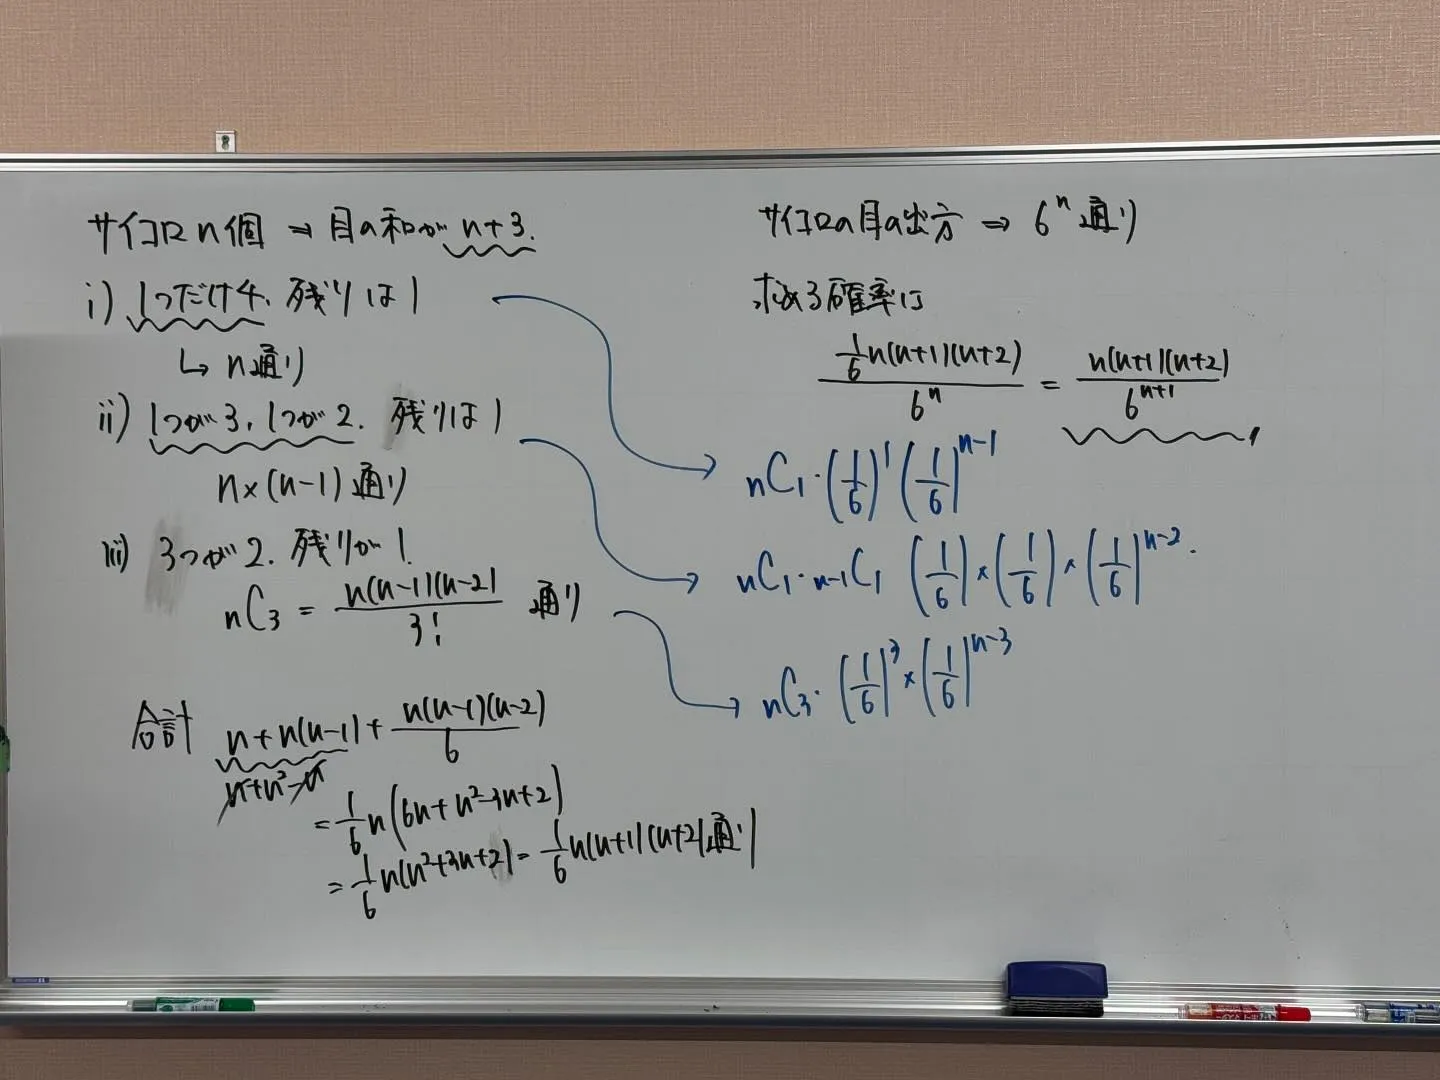 サイコロn個 ⇒ 目の和が n+3.
i) 1つだけ4, 残りは1
↳ n通り
ii) 1つが3, 1つが2. 残りは1
n×(n-1)通り
iii) 3つが2. 残りが1.
nC3 = n(n-1)(n-2)/3! 通り
合計 n+n(n-1)+n(n-1)(n-2)/6
n+n²-n
=1/6 n(6n+n²-3n+2)
=1/6 n(n²+3n+2)=1/6 n(n+1)(n+2)通り
サイコロの目の出方 ⇒ 6ⁿ通り
求める確率は
1/6 n(n+1)(n+2)/6ⁿ = n(n+1)(n+2)/6ⁿ⁺¹
nC1・(1/6)¹(1/6)ⁿ⁻¹
nC1・n-1C1 (1/6)×(1/6)×(1/6)ⁿ⁻².
nC3・(1/6)³×(1/6)ⁿ⁻³